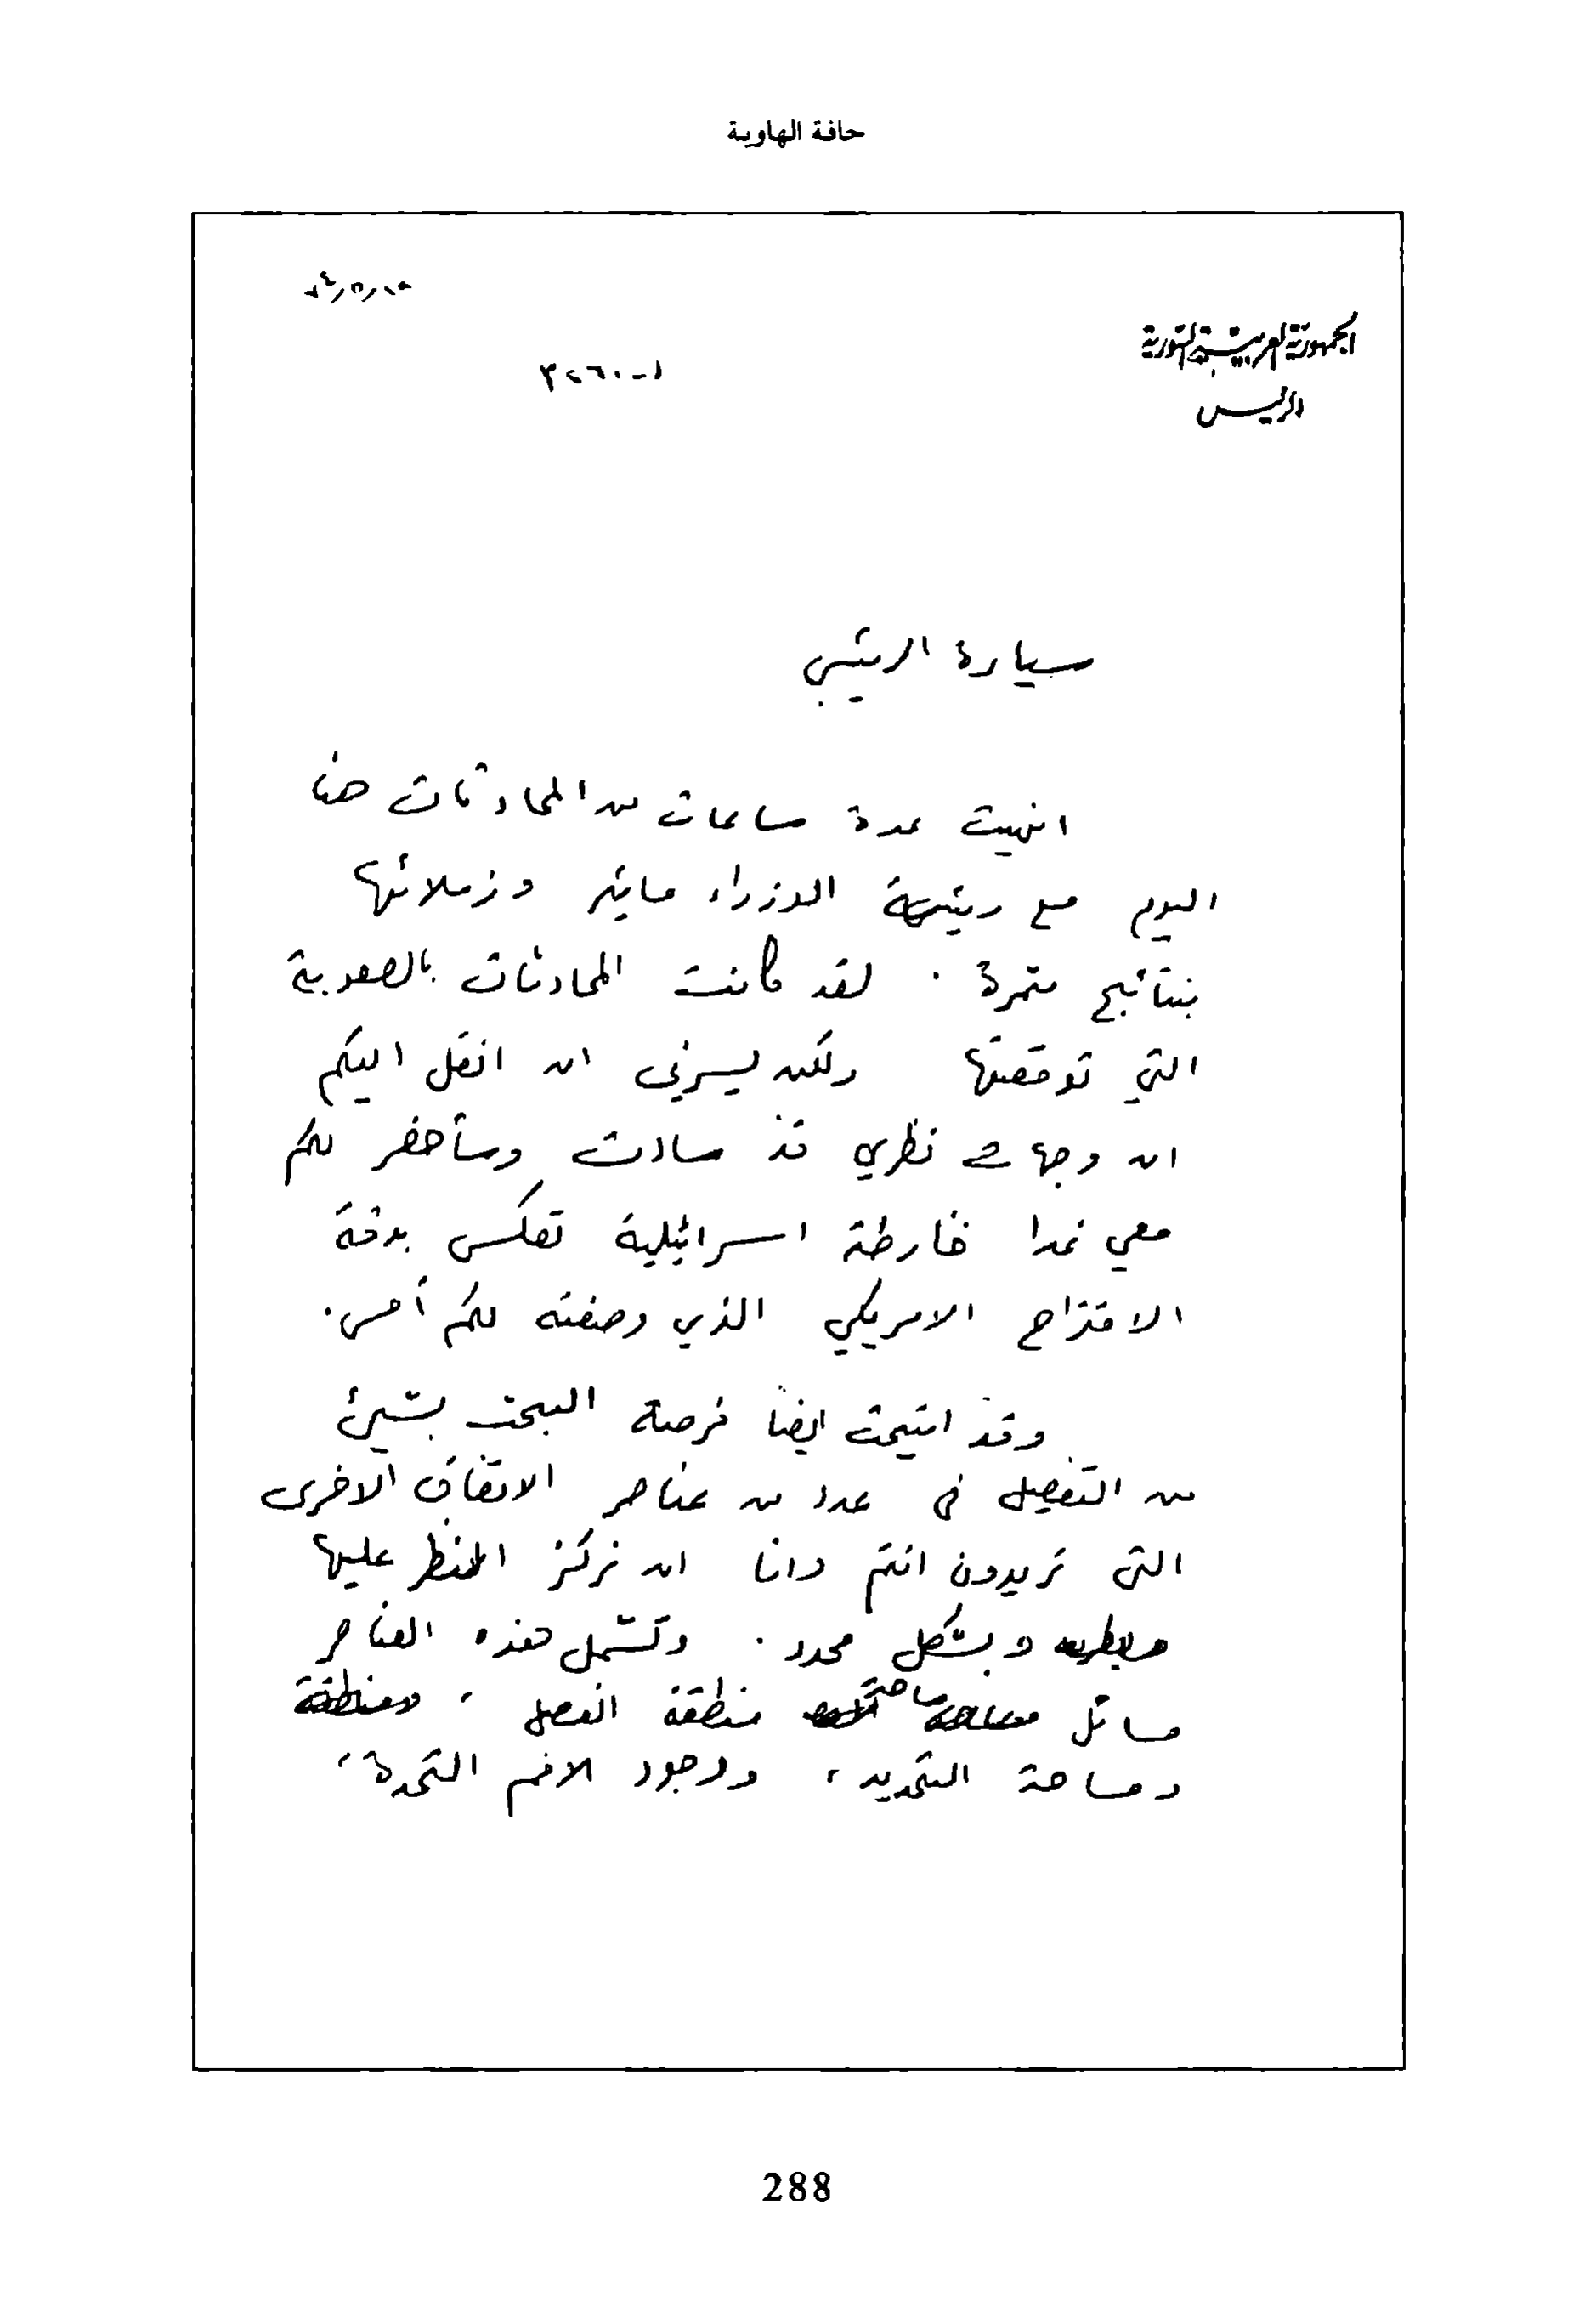 حافة الهاوية
الجمهورية العربية السورية
الرئيس
سيادة الرئيس
انهيت عدة ساعات من المحادثات هنا
اليوم مع رئيسة الوزراء مائير وزملائها
بنتائج مثمرة . لقد كانت المحادثات بالصعوبة
التي توقعتها ولكن يسرني ان انقل اليكم
ان وجهات نظري قد سادت وسأحضر لكم
معي غدا خارطة اسرائيلية تعكس بدقة
الاقتراح الامريكي الذي وصفته لكم أمس .
وقد اتيحت ايضا فرصة البحث بشيئ
من التفصيل في عدد من عناصر الاتفاق الاخرى
التي تريدون انتم وانا ان نركز النظر عليها
وبشكل محدد . وتشمل هذه العناصر
مسائل ساحة منطقة الفصل ،
ومساحة التحديد ، ووجود الامم المتحدة ،
288